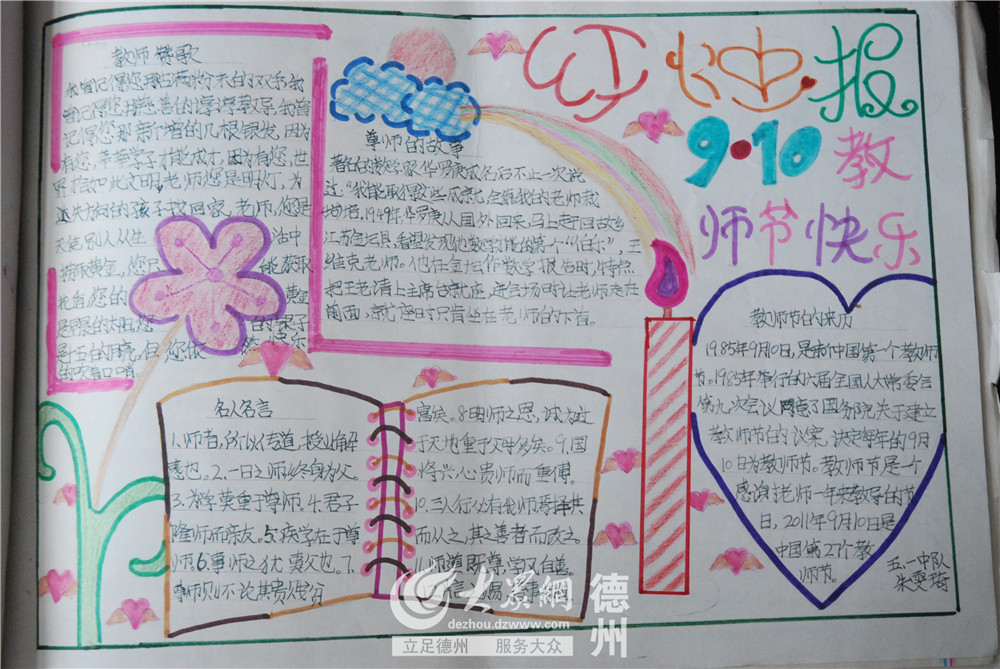 红快报
9·10 教
师节快乐
教师赞歌
曾记得您慈善的谆谆教导,我曾
记得您那新增的几根银发,因为
有您,莘莘学子才能成才,因为有您,世
界才会如此文明,老师您是明灯,为
迷失方向的孩子找回家,老师,您是
尊师的故事
著名的数学家华罗庚成名后不止一次说
过,“我能取得这些成就,全靠我的老师栽
培。1949年华罗庚从国外回来,马上赶回故乡
江苏金坛县,看望发现他数学才能的第一个“伯乐”,王
维克老师。他在金坛作数学报告时,特意
把王老请上主席台就座,进会场时让老师走在
前面,就座时只肯坐在老师的下首。
名人名言
1.师者,所以传道,授业解
惑也。2.一日之师终身为父。
3.为学莫重于尊师。4.君子
隆师而亲友。5.疾学在于尊
师。6.事师之犹事父也。7.
尊师则不论其贵贱贫
富矣。8.明师之恩,诚为过
于天地,重于父母多矣。9.国
将兴,心贵师而重傅。
10.三人行必有我师焉择其
而从之,其之善者而改之。
11.师道既尊,学又自善。
教师节的来历
1985年9月10日,是新中国第一个教师
节。1985年举行的六届全国人大常委会
第九次会议同意了国务院关于建立
教师节的议案,决定每年的9月
10日为教师节。教师节是一个
感谢老师一年来教导的节
日,2011年9月10日是
中国第27个教
师节。
五.一中队
大众網 德州
dezhou.dzwww.com
立足德州 服务大众